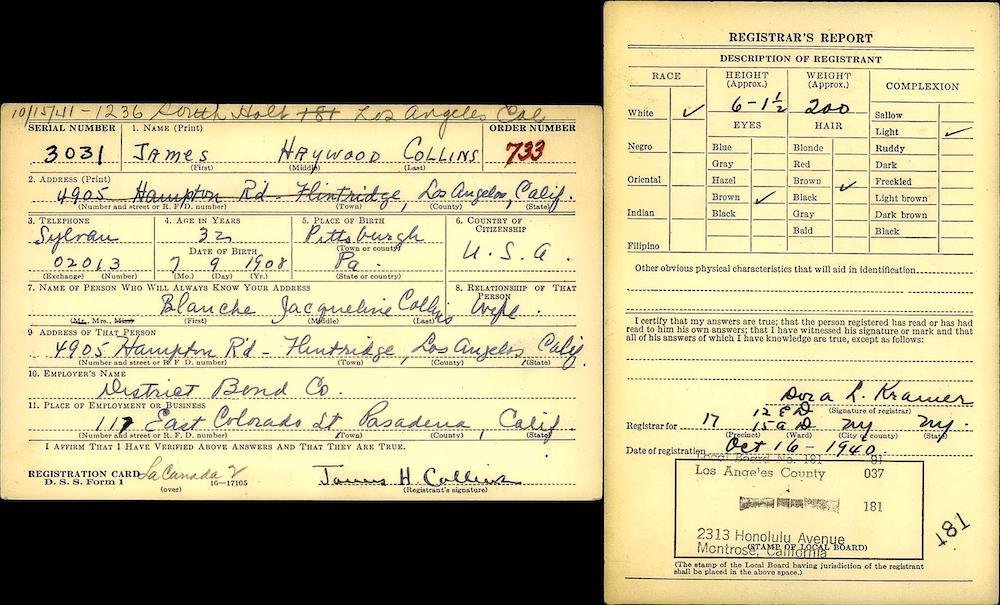 10/15/41 - 1236 South Holt Los Angeles Cal
SERIAL NUMBER 1. NAME (Print) ORDER NUMBER
3031 JAMES HAYWOOD COLLINS 733
(First) (Middle) (Last)
2. ADDRESS (Print)
4905 Hampton Rd - Flintridge, Los Angeles, Calif.
(Number and street or R. F. D. number) (Town) (County) (State)
3. TELEPHONE 4. AGE IN YEARS 5. PLACE OF BIRTH 6. COUNTRY OF CITIZENSHIP
Sylvan 32 Pittsburgh U. S. A.
DATE OF BIRTH (Town or county)
02013 7 9 1908 Pa.
(Exchange) (Number) (Mo.) (Day) (Yr.) (State or country)
7. NAME OF PERSON WHO WILL ALWAYS KNOW YOUR ADDRESS 8. RELATIONSHIP OF THAT PERSON
Blanche Jacqueline Collins Wife
(Mr., Mrs., Miss) (First) (Middle) (Last)
9 ADDRESS OF THAT PERSON
4905 Hampton R'd - Flintridge, Los Angeles, Calif.
(Number and street or R. F. D. number) (Town) (County) (State)
10. EMPLOYER'S NAME
District Bond Co.
11. PLACE OF EMPLOYMENT OR BUSINESS
117 East Colorado St Pasadena, Calif.
(Number and street or R. F. D. number) (Town) (County) (State)
I AFFIRM THAT I HAVE VERIFIED ABOVE ANSWERS AND THAT THEY ARE TRUE.
REGISTRATION CARD La Canada James H. Collins
D. S. S. Form 1 (over) 16—17105 (Registrant's signature)
REGISTRAR'S REPORT
DESCRIPTION OF REGISTRANT
RACE HEIGHT (Approx.) WEIGHT (Approx.) COMPLEXION
White ✓ 6-1½ 200 Sallow
EYES HAIR Light ✓
Negro Blue Blonde Ruddy
Gray Red Dark
Oriental Hazel Brown ✓ Freckled
Brown ✓ Black Light brown
Indian Black Gray Dark brown
Bald Black
Filipino
Other obvious physical characteristics that will aid in identification
I certify that my answers are true; that the person registered has read or has had
read to him his own answers; that I have witnessed his signature or mark and that
all of his answers of which I have knowledge are true, except as follows:
Dora L. Kramer
(Signature of registrar)
12 E D
Registrar for 17 15 A D NY NY.
(Precinct) (Ward) (City or county) (State)
Date of registration Oct 16 - 1940
Local Board No. 181 81
Los Angeles County 037
181
2313 Honolulu Avenue
Montrose, California
(STAMP OF LOCAL BOARD)
181
(The stamp of the Local Board having jurisdiction of the registrant
shall be placed in the above space.)